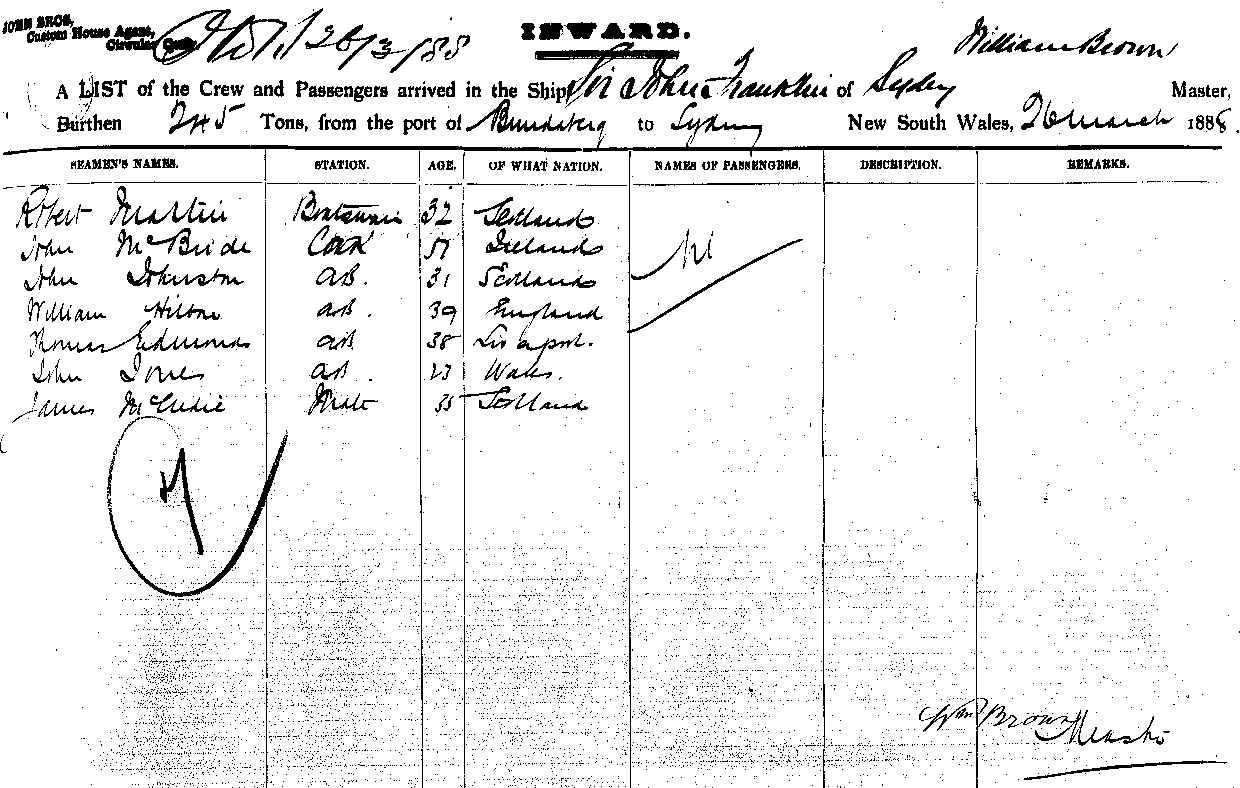 JOHN BROS,
Custom House Agent,
Circular Quay.
26/3/88
INWARD.
William Brown
A LIST of the Crew and Passengers arrived in the Ship Sir John Franklin of Sydney Master,
Burthen 245 Tons, from the port of Bundaberg to Sydney New South Wales, 26 March 1888.
SEAMEN'S NAMES. STATION. AGE. OF WHAT NATION. NAMES OF PASSENGERS. DESCRIPTION. REMARKS.
Robert Martin Boatswain 32 Scotland
John McBride Cook 51 Ireland Nil
John Johnston AB. 31 Scotland
William Hilton AB. 39 England
Thomas Edmonds AB 38
John Jones AB. 23 Wales.
James Mate 35 Scotland
7
Wm Brown
Master